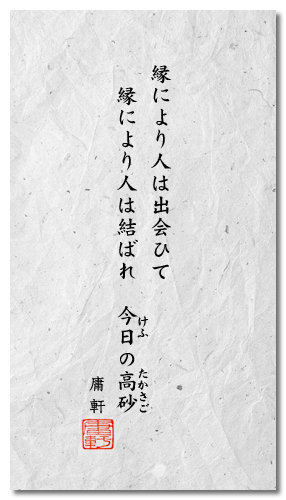 縁により人は出会ひて
縁により人は結ばれ　今日の高砂
けふ
たかさご
庸軒
庸軒